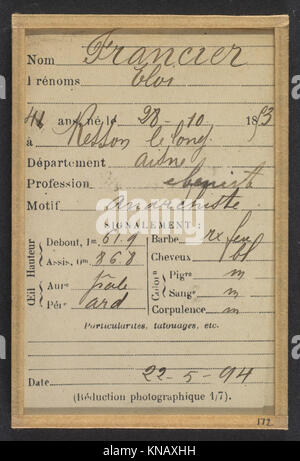 Nom Francier
Prénoms Eloi
41 ans, né le 28-10 1853
à Resson le long
Département aisne
Profession ebeniste
Motif anarchiste
SIGNALEMENT :
Hauteur
Debout, 1m 61.9
Assis, 0m 868
Œil
Aur. pale
Pér. ard
Barbe
Cheveux
Color n
Pigre m
Sang e m
Corpulence m
Particularités, tatouages, etc.
Date 22-5-94
(Réduction photographique 1/7).
172
alamy
Image ID: KNAXHH
www.alamy.com